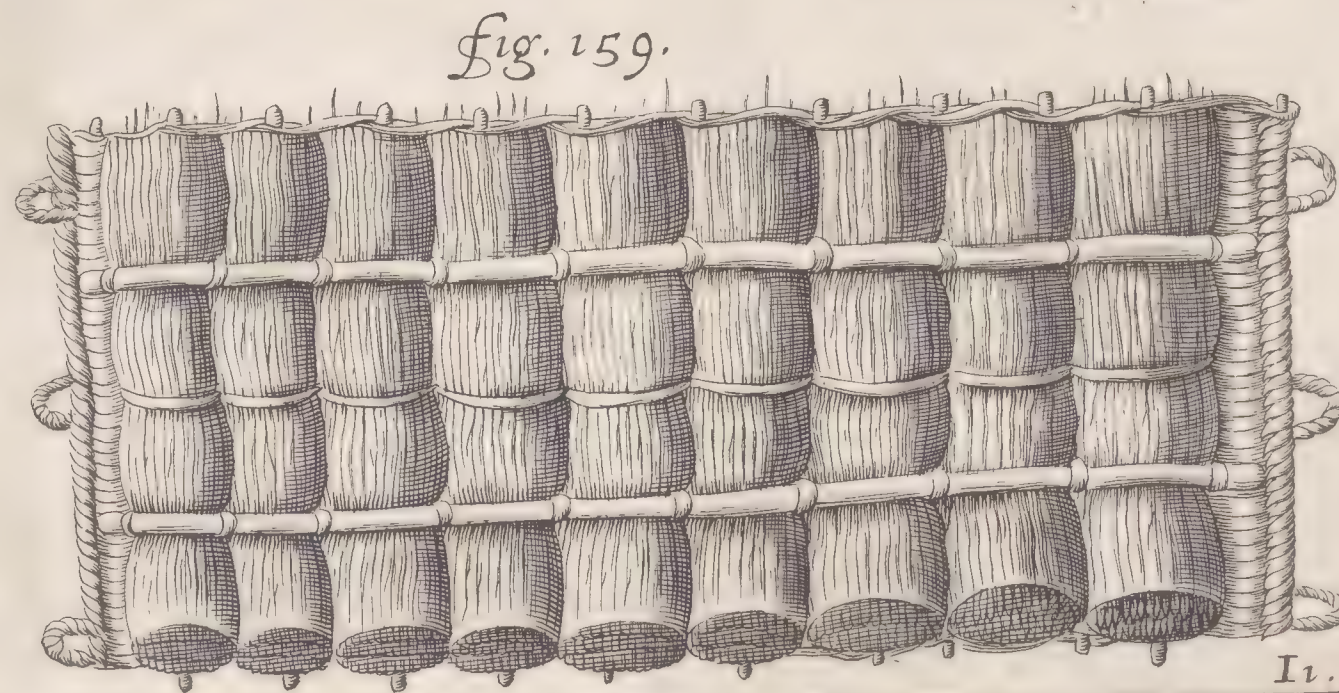 fig. 159.
I1.